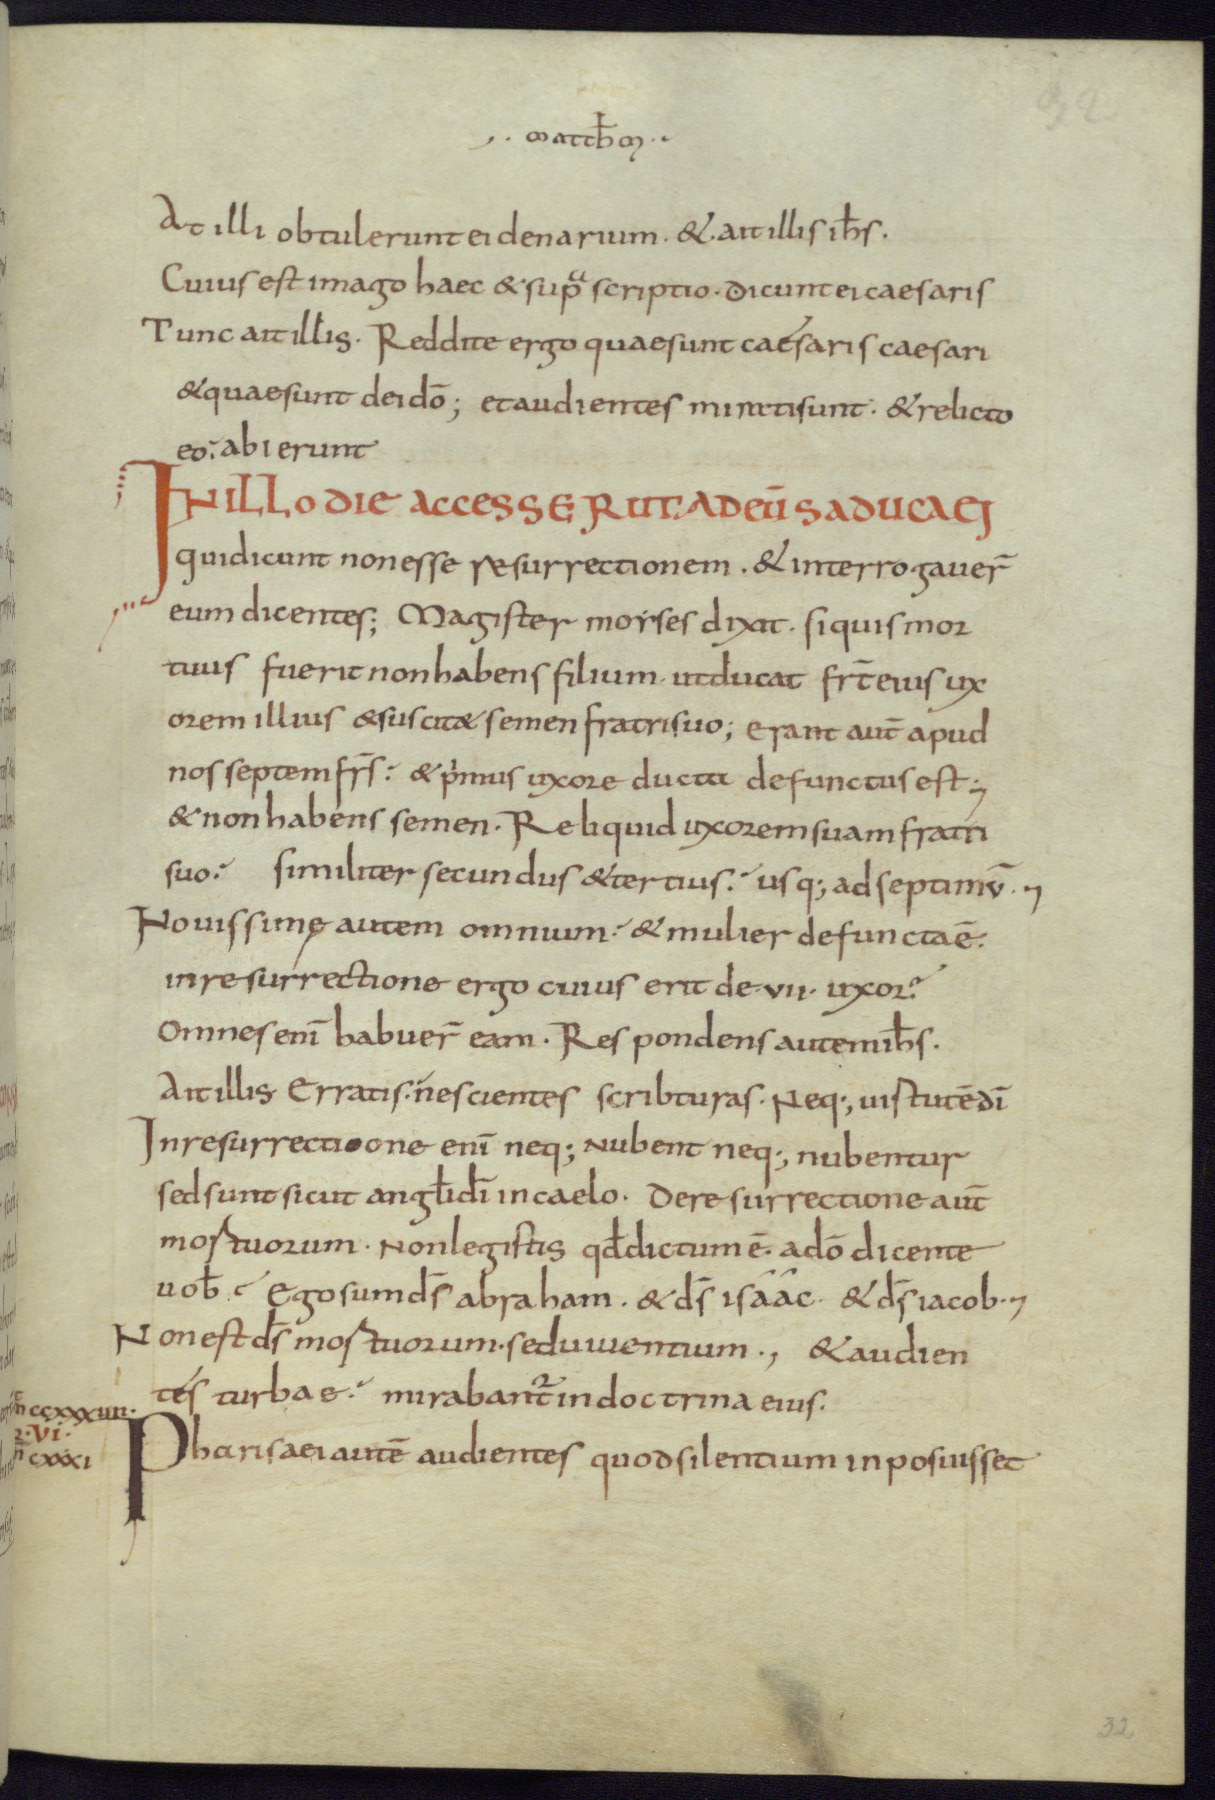 matthm
At illi obtulerunt ei denarium. & ait illis ihs.
Cuius est imago haec & supra scriptio. dicunt ei caesaris
Tunc ait illis. Reddite ergo quae sunt caesaris caesari
& quae sunt dei dō; et audientes mirati sunt. & relicto
eo: abierunt
IN ILLO DIE ACCESSERUT AD EŪ SADUCAEI
qui dicunt non esse resurrectionem. & interrogauer̄
eum dicentes; Magister moyses dixit. si quis mor
tuus fuerit non habens filium. ut ducat fr̄t eius ux
orem illius & suscitæ semen fratri suo; erant aut̄ apud
nos septem fr̄s: & primus uxore ducta defunctus est;
& non habens semen. Reliquid uxorem suam fratri
suo: similiter secundus & tertius: usq; ad septimū.
Nouissime autem omnium: & mulier defuncta ē.
in resurrectione ergo cuius erit de vii uxor?
Omnes enī habuer̄ eam. Respondens autem ihs.
Ait illis Erratis. nescientes scribturas. Neq; uirtutē dī
In resurrectioone enī neq; nubent neq; nubentur
sed sunt sicut angli dī in caelo. De resurrectione aut̄
mortuorum. Non legistis qd dictum ē. a dō dicente
uob: Ego sum ds̄ abraham. & ds̄ isaac. & ds̄ iacob.
Non est ds̄ mortuorum. sed uiuentium., & audien
tes turbae: mirabant in doctrina eius.
ccxxxiiii.
vi.
cxxxi
Pharisaei autē audientes quod silentium inposuisset
32